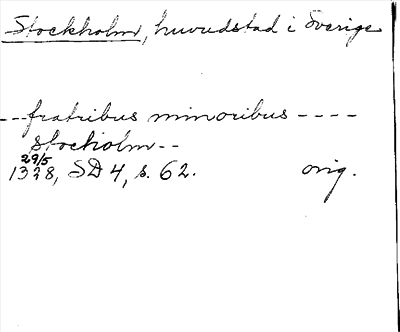 Stockholm, huvudstad i Sverige
--fratribus minoribus ----
stockolm--
29/5
1328, SD 4, s. 62. orig.